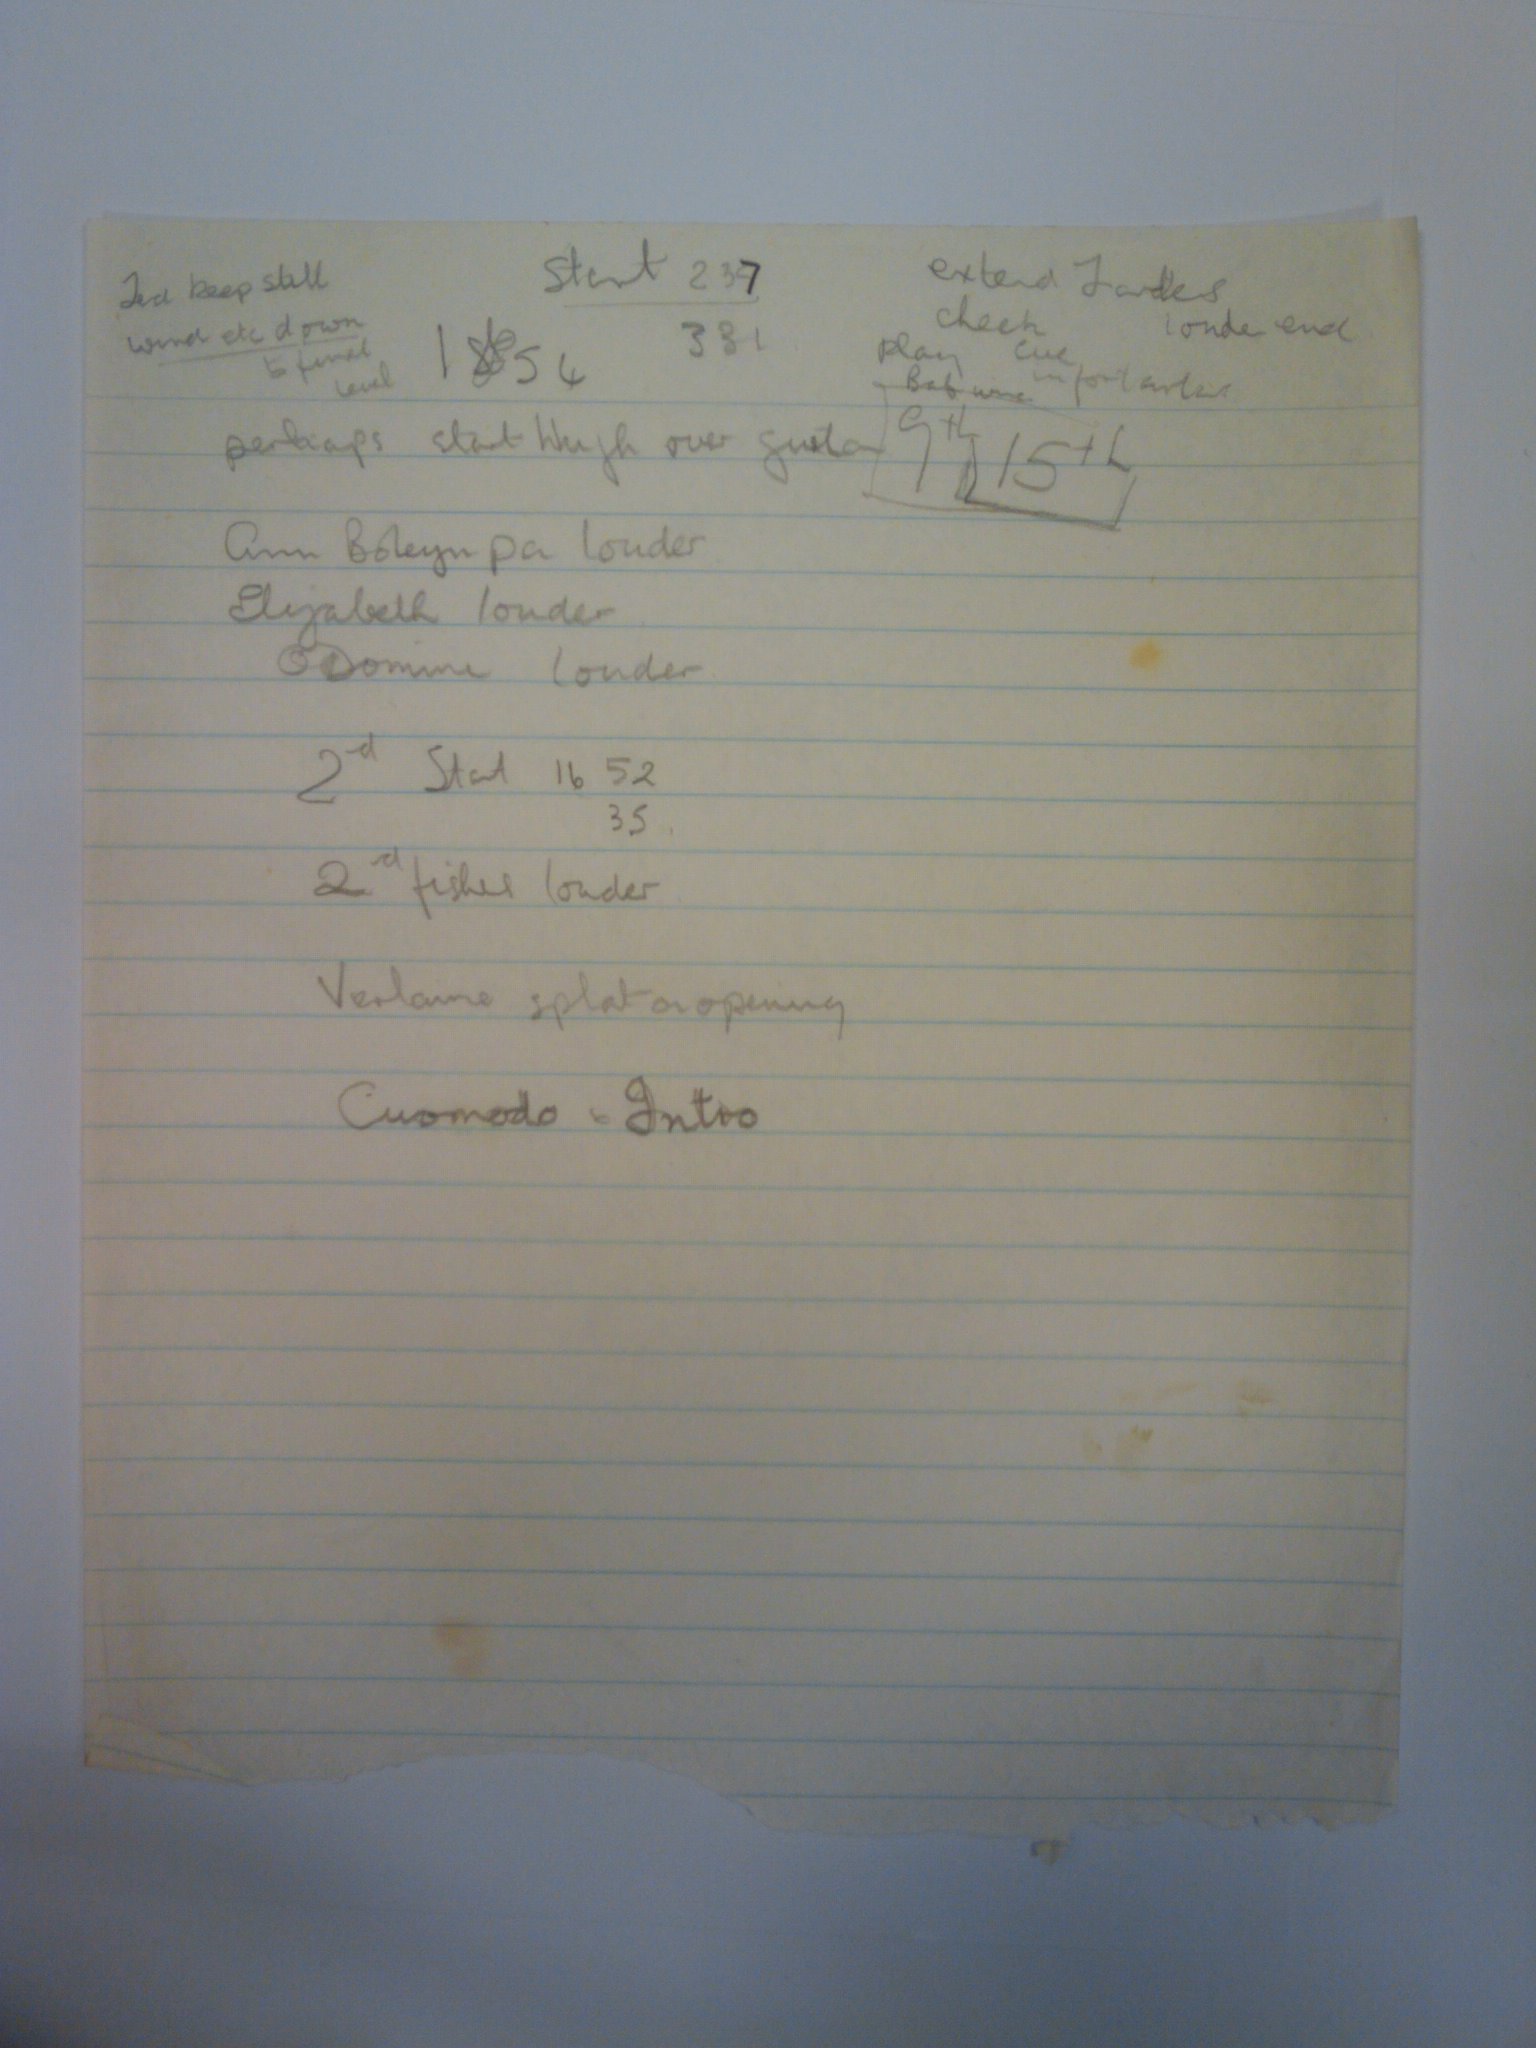 Ted keep still
wind etc down
to final
level
Start 237
381
54
extend
check louder end
play cue
9th 15th
perhaps start Hugh over guitar
Ann Boleyn pa louder
Elizabeth louder
O Domine louder
2d Start 16 52
35
2d fisher louder
Verlaine splat on opening
Cuomodo - Intro